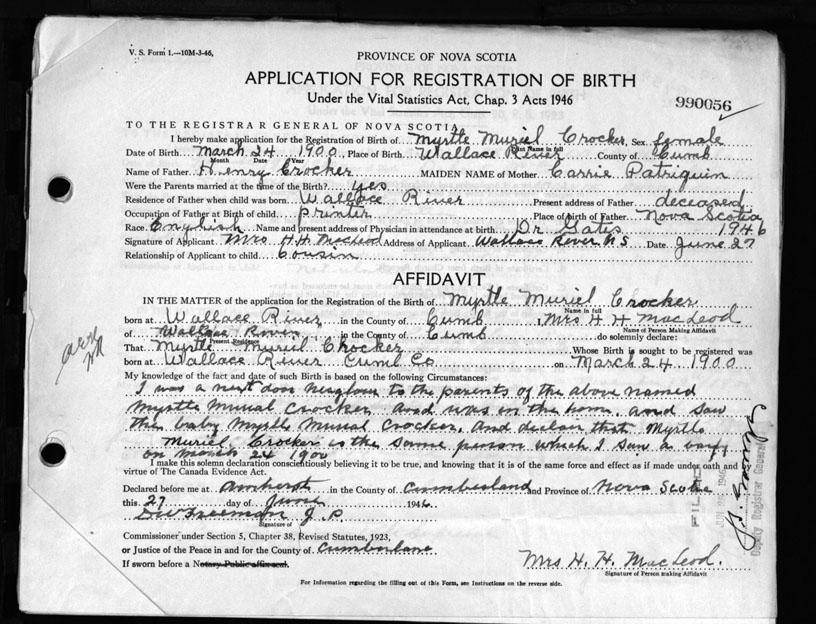 V. S. Form 1.—10M-3-46,
PROVINCE OF NOVA SCOTIA
APPLICATION FOR REGISTRATION OF BIRTH
Under the Vital Statistics Act, Chap. 3 Acts 1946
990056
TO THE REGISTRAR GENERAL OF NOVA SCOTIA
I hereby make application for the Registration of Birth of Myrtle Muriel Crocker, Sex female
Print Name in full
Date of Birth March 24 1900 Place of Birth Wallace River County of Cumb
Month Date Year
Name of Father Henry Crocker MAIDEN NAME of Mother Carrie Patriquin
Were the Parents married at the time of the Birth? yes
Residence of Father when child was born Wallace River Present address of Father deceased
Occupation of Father at Birth of child printer Place of birth of Father Nova Scotia
Race English Name and present address of Physician in attendance at birth Dr Gates 1946
Signature of Applicant Mrs H H MacLeod Address of Applicant Wallace River N.S Date June 27
Relationship of Applicant to child Cousin
AFFIDAVIT
IN THE MATTER of the application for the Registration of the Birth of Myrtle Muriel Crocker
Name in full
born at Wallace River in the County of Cumb , Mrs H H MacLeod
Name of Person Making Affidavit
of Wallace River in the County of Cumb do solemnly declare:
Present Residence
That Myrtle Muriel Crocker Whose Birth is sought to be registered was
born at Wallace River Cumb Co on March 24 1900
My knowledge of the fact and date of such Birth is based on the following Circumstances:
I was a next door neighbour to the parents of the above named
Myrtle Murial Crocker And was in the home, and saw
the baby Myrtle Murial Crocker. And declair that Myrtle
Muriel Crocker is the same person which I saw a baby
on March 24 1900
I make this solemn declaration conscientiously believing it to be true, and knowing that it is of the same force and effect as if made under oath and
virtue of The Canada Evidence Act.
Declared before me at Amherst in the County of Cumberland and Province of Nova Scotia
this 27 day of June 1946
Freeman J. P.
Signature of
Commissioner under Section 5, Chapter 38, Revised Statutes, 1923,
or Justice of the Peace in and for the County of Cumberland
If sworn before a Notary Public affix seal.
Mrs H. H. MacLeod.
Signature of Person making Affidavit
For Information regarding the filling out of this Form, see Instructions on the reverse side.
Deputy Registrar General